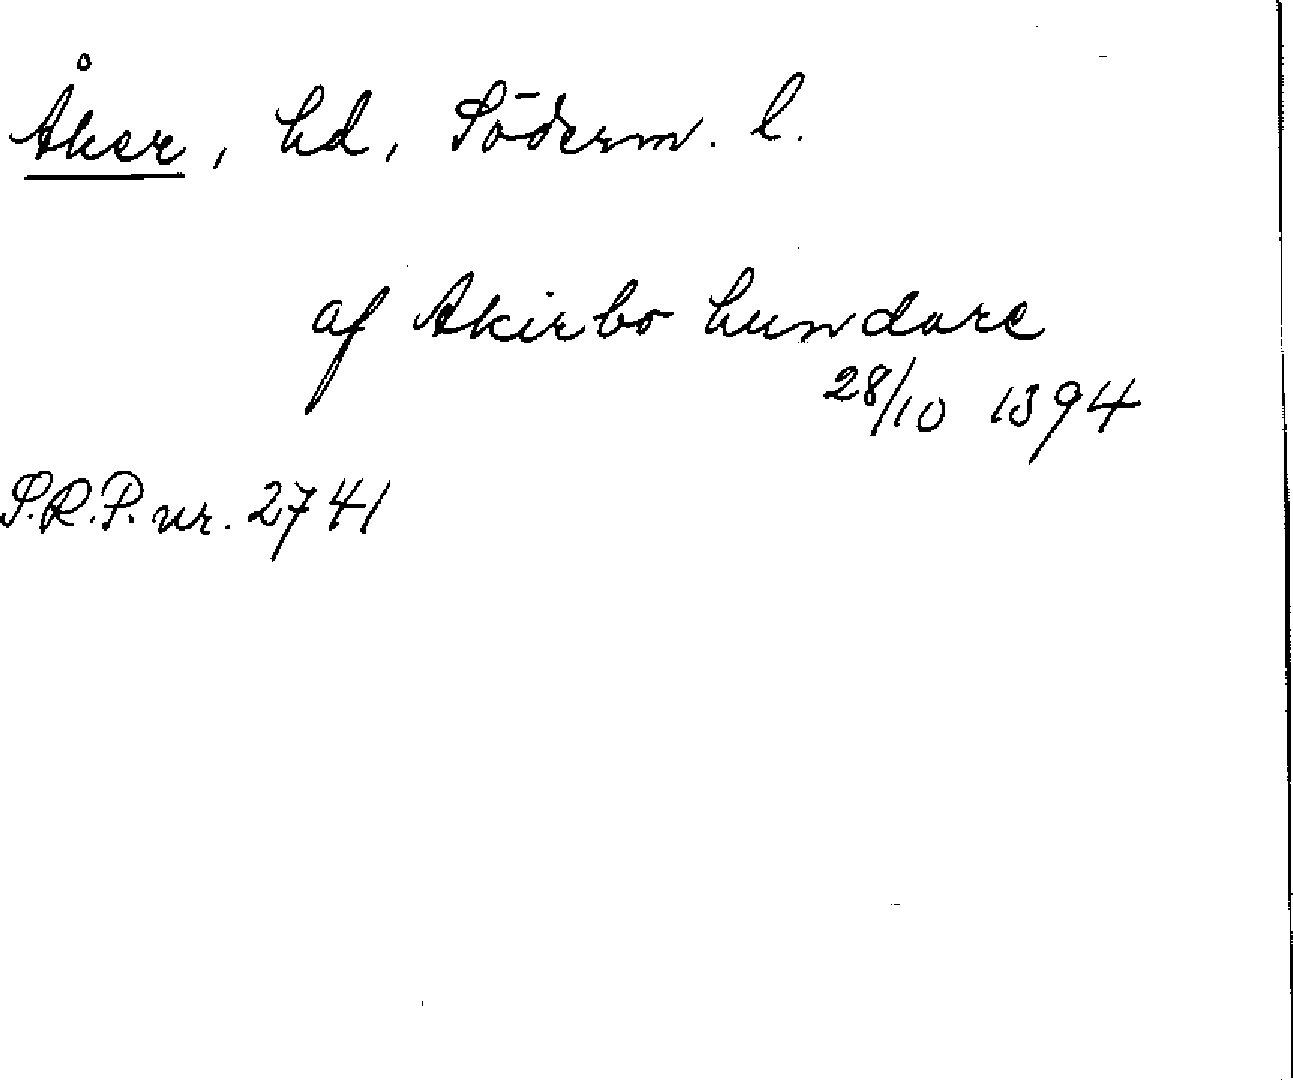 Åker, hd, Söderm. l.
af Akirbo hundare
28/10 1394
S.R.P. nr. 2741